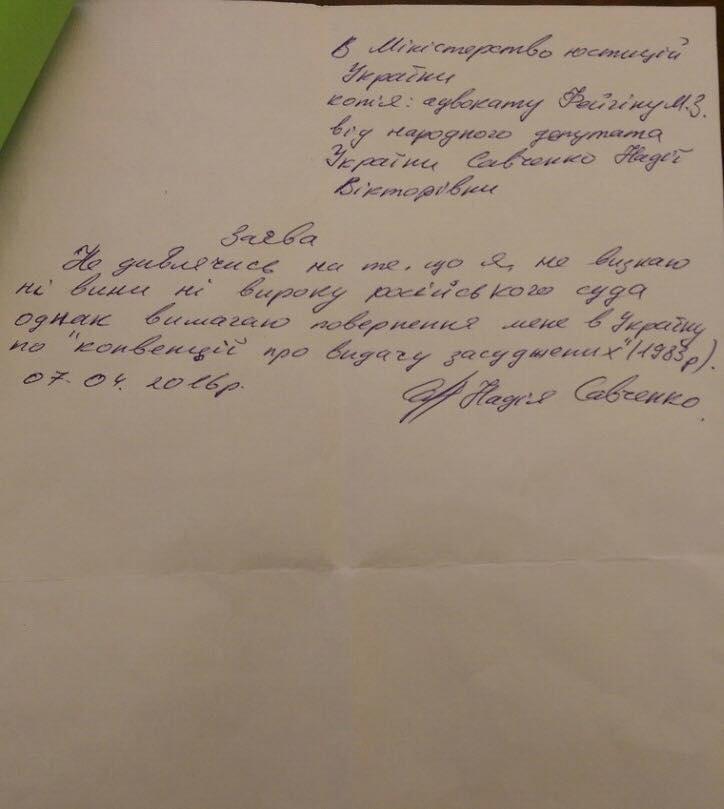 В Міністерство юстицій
України
копія: адвокату Фейгіну М.З.
від народного депутата
України Савченко Надії
Вікторівни
Заєва
Не дивлячись на те, що я, не визнаю
ні вини ні вироку російського суда
однак вимагаю повернення мене в Україну
по "конвенції про видачу засуджених" (1983р).
07.04.2016р.
Надія Савченко.